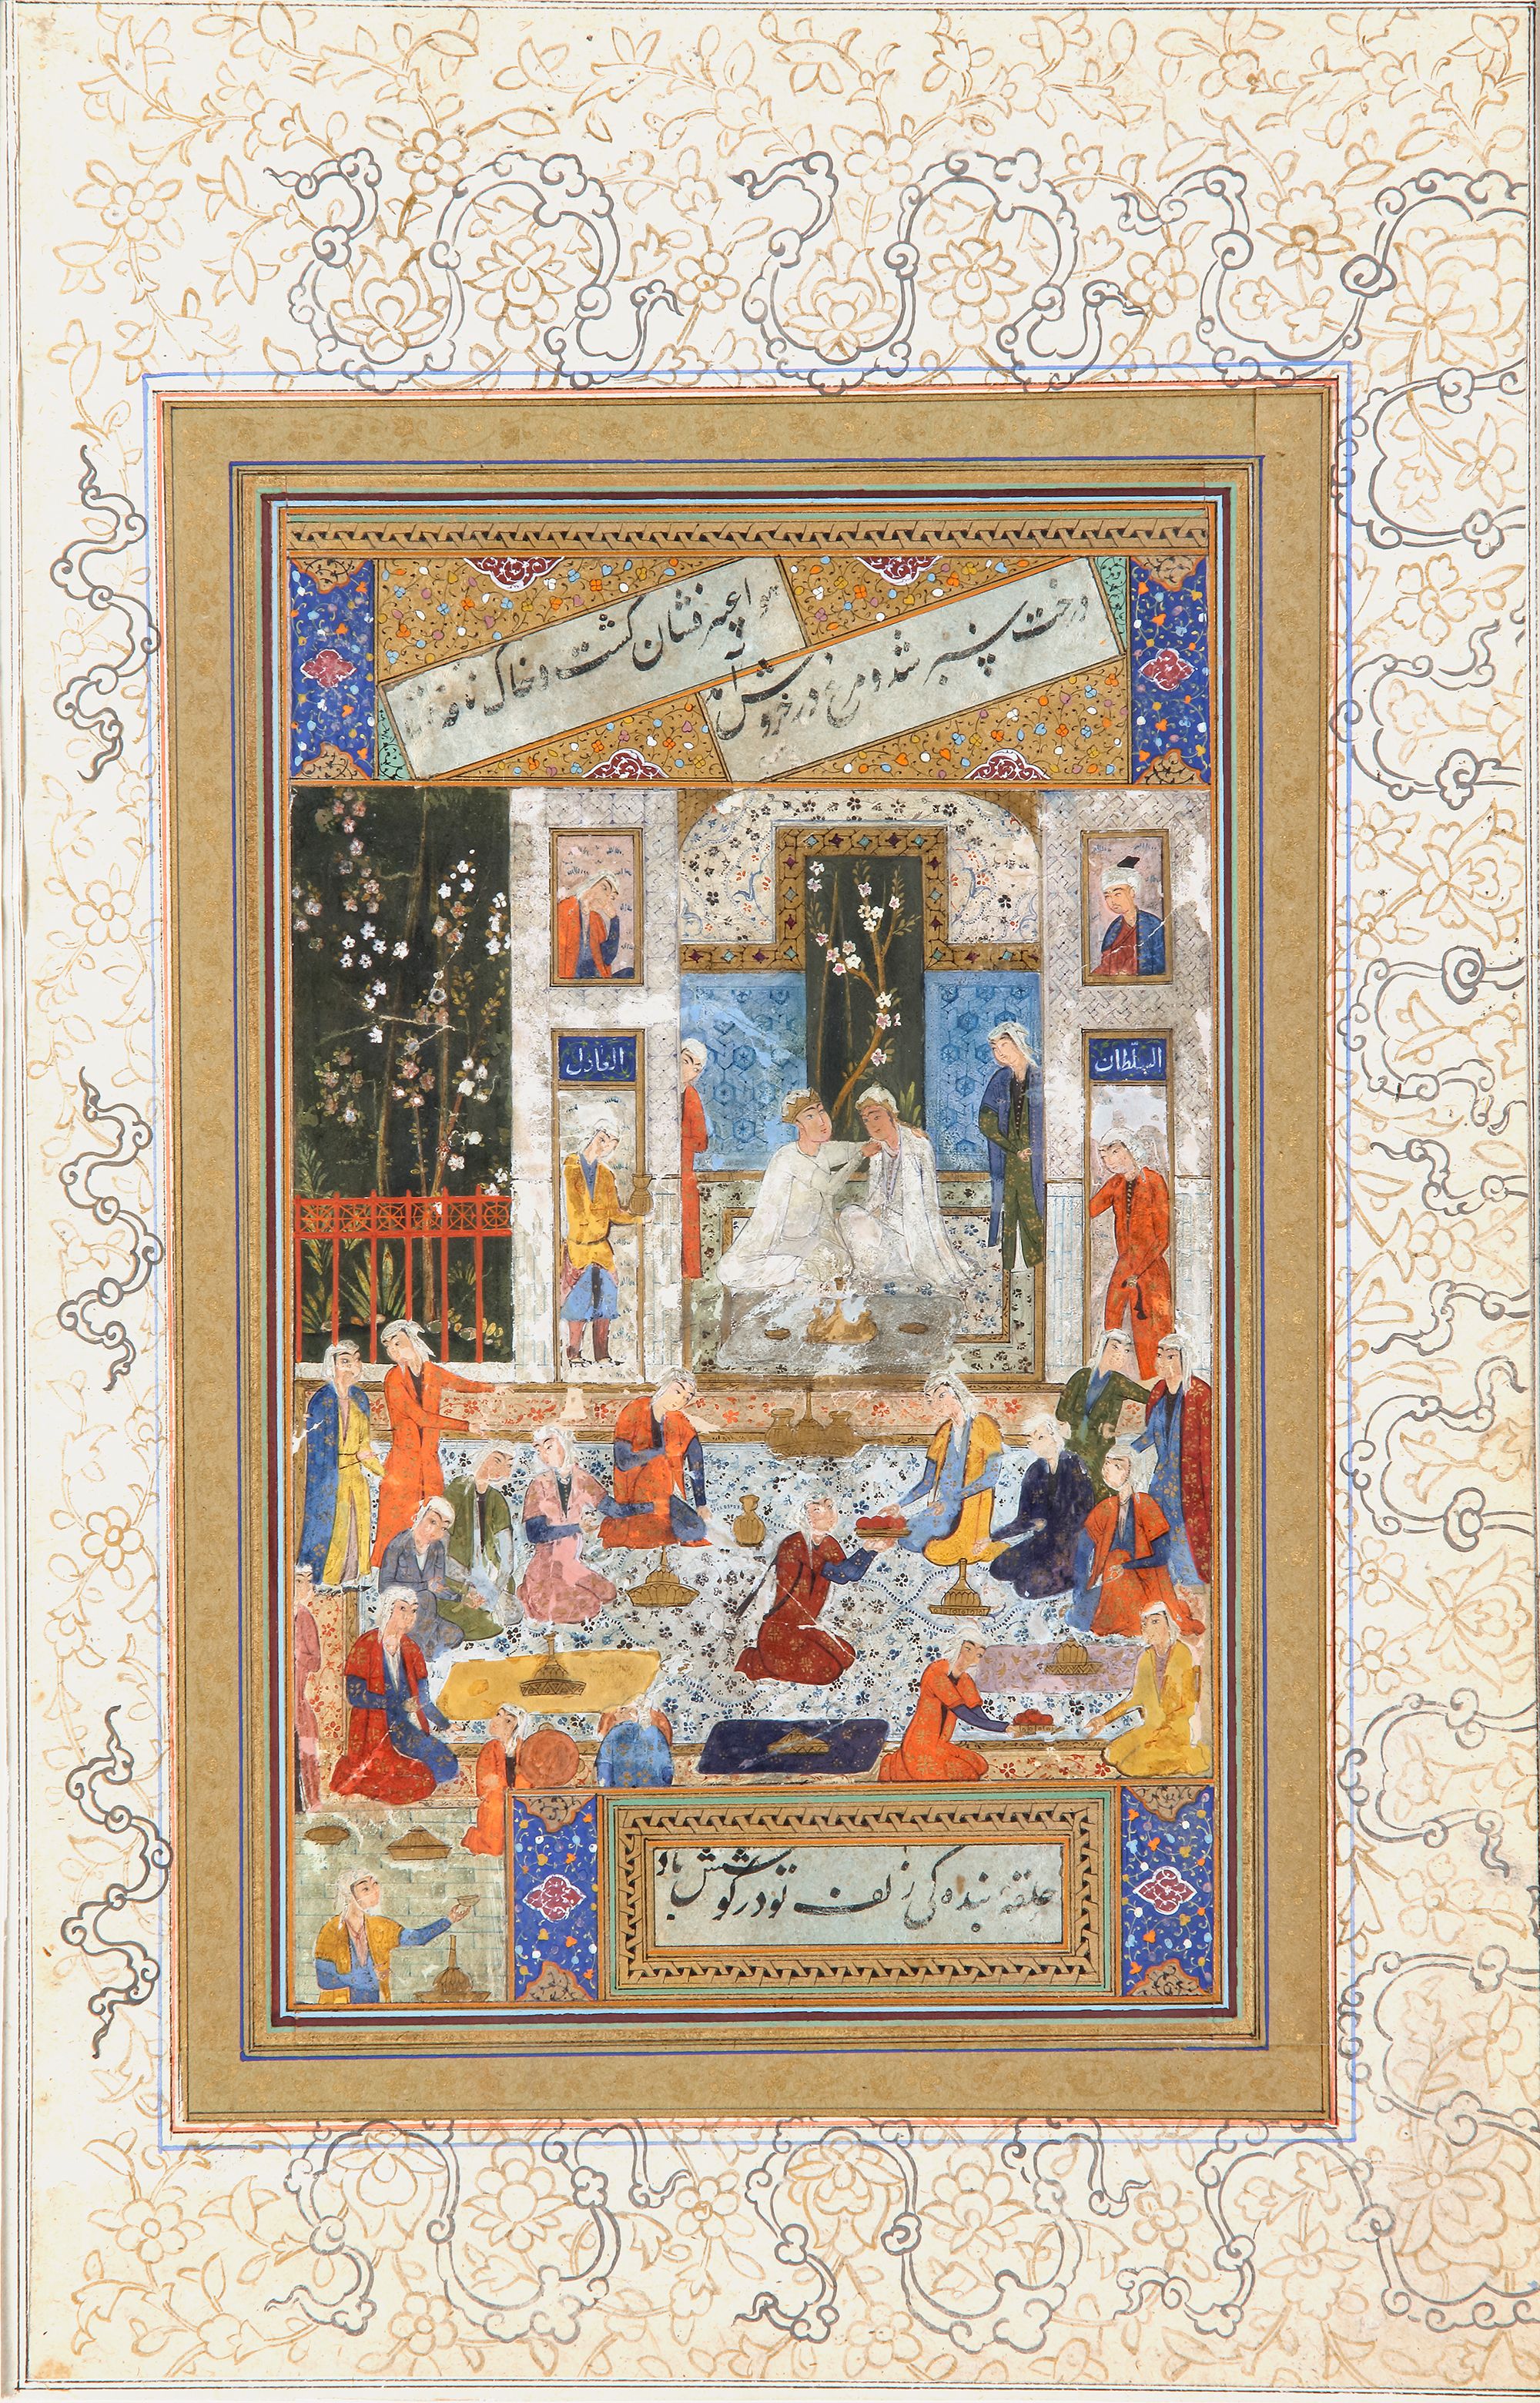 درخت سبز شد و مرغ در خروش آمد
هوا عبیر فشان گشت و خاک نافه
السلطان
العادل
حلقهٔ بنده کی زلف تو در گوشش باد